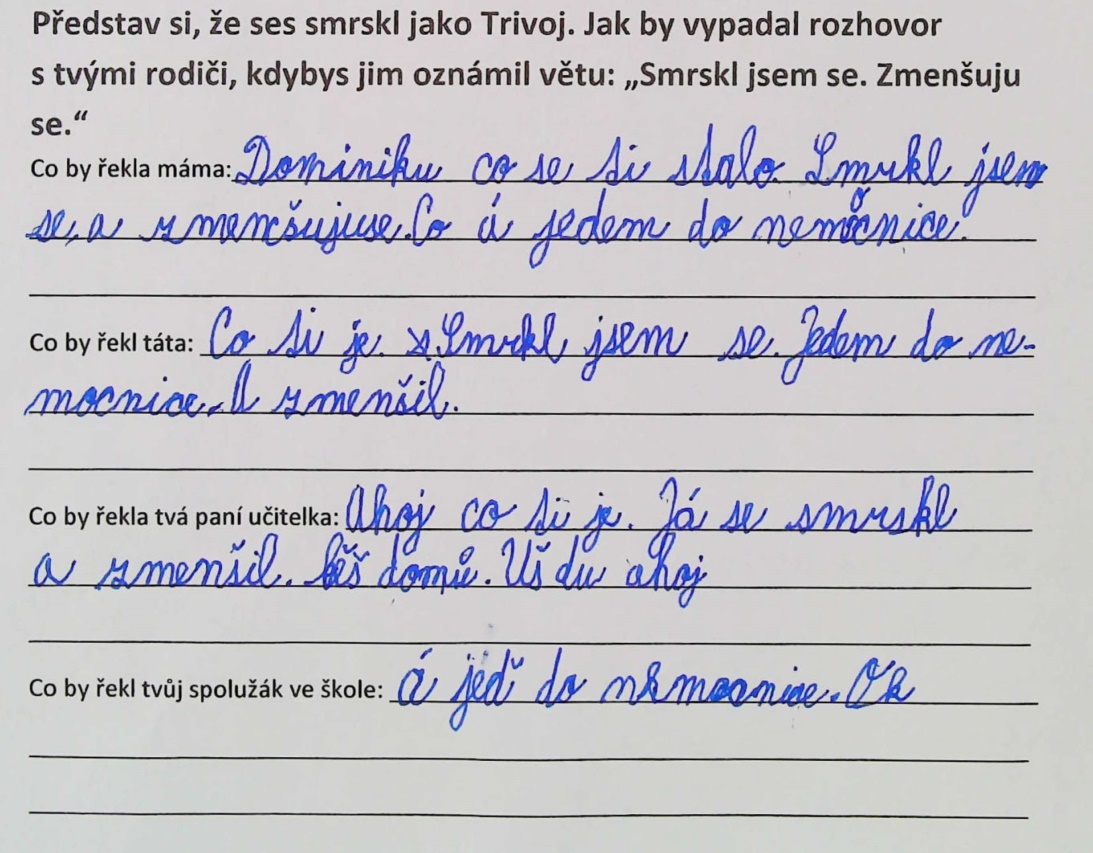 Představ si, že ses smrskl jako Trivoj. Jak by vypadal rozhovor
s tvými rodiči, kdybys jim oznámil větu: „Smrskl jsem se. Zmenšuju
se.“
Co by řekla máma: Dominiku co se ti stalo. Smrkl jsem
se, a zmenšujuse. Co á jedem do nemocnice.
Co by řekl táta: Co ti je. Smrkl jsem se. Jedem do ne-
mocnice. A zmenšil.
Co by řekla tvá paní učitelka: Ahoj co ti je. Já se smrskl
a zmenšil. běš domů. Uš du ahoj
Co by řekl tvůj spolužák ve škole: á jeď do nemocnice. Ok